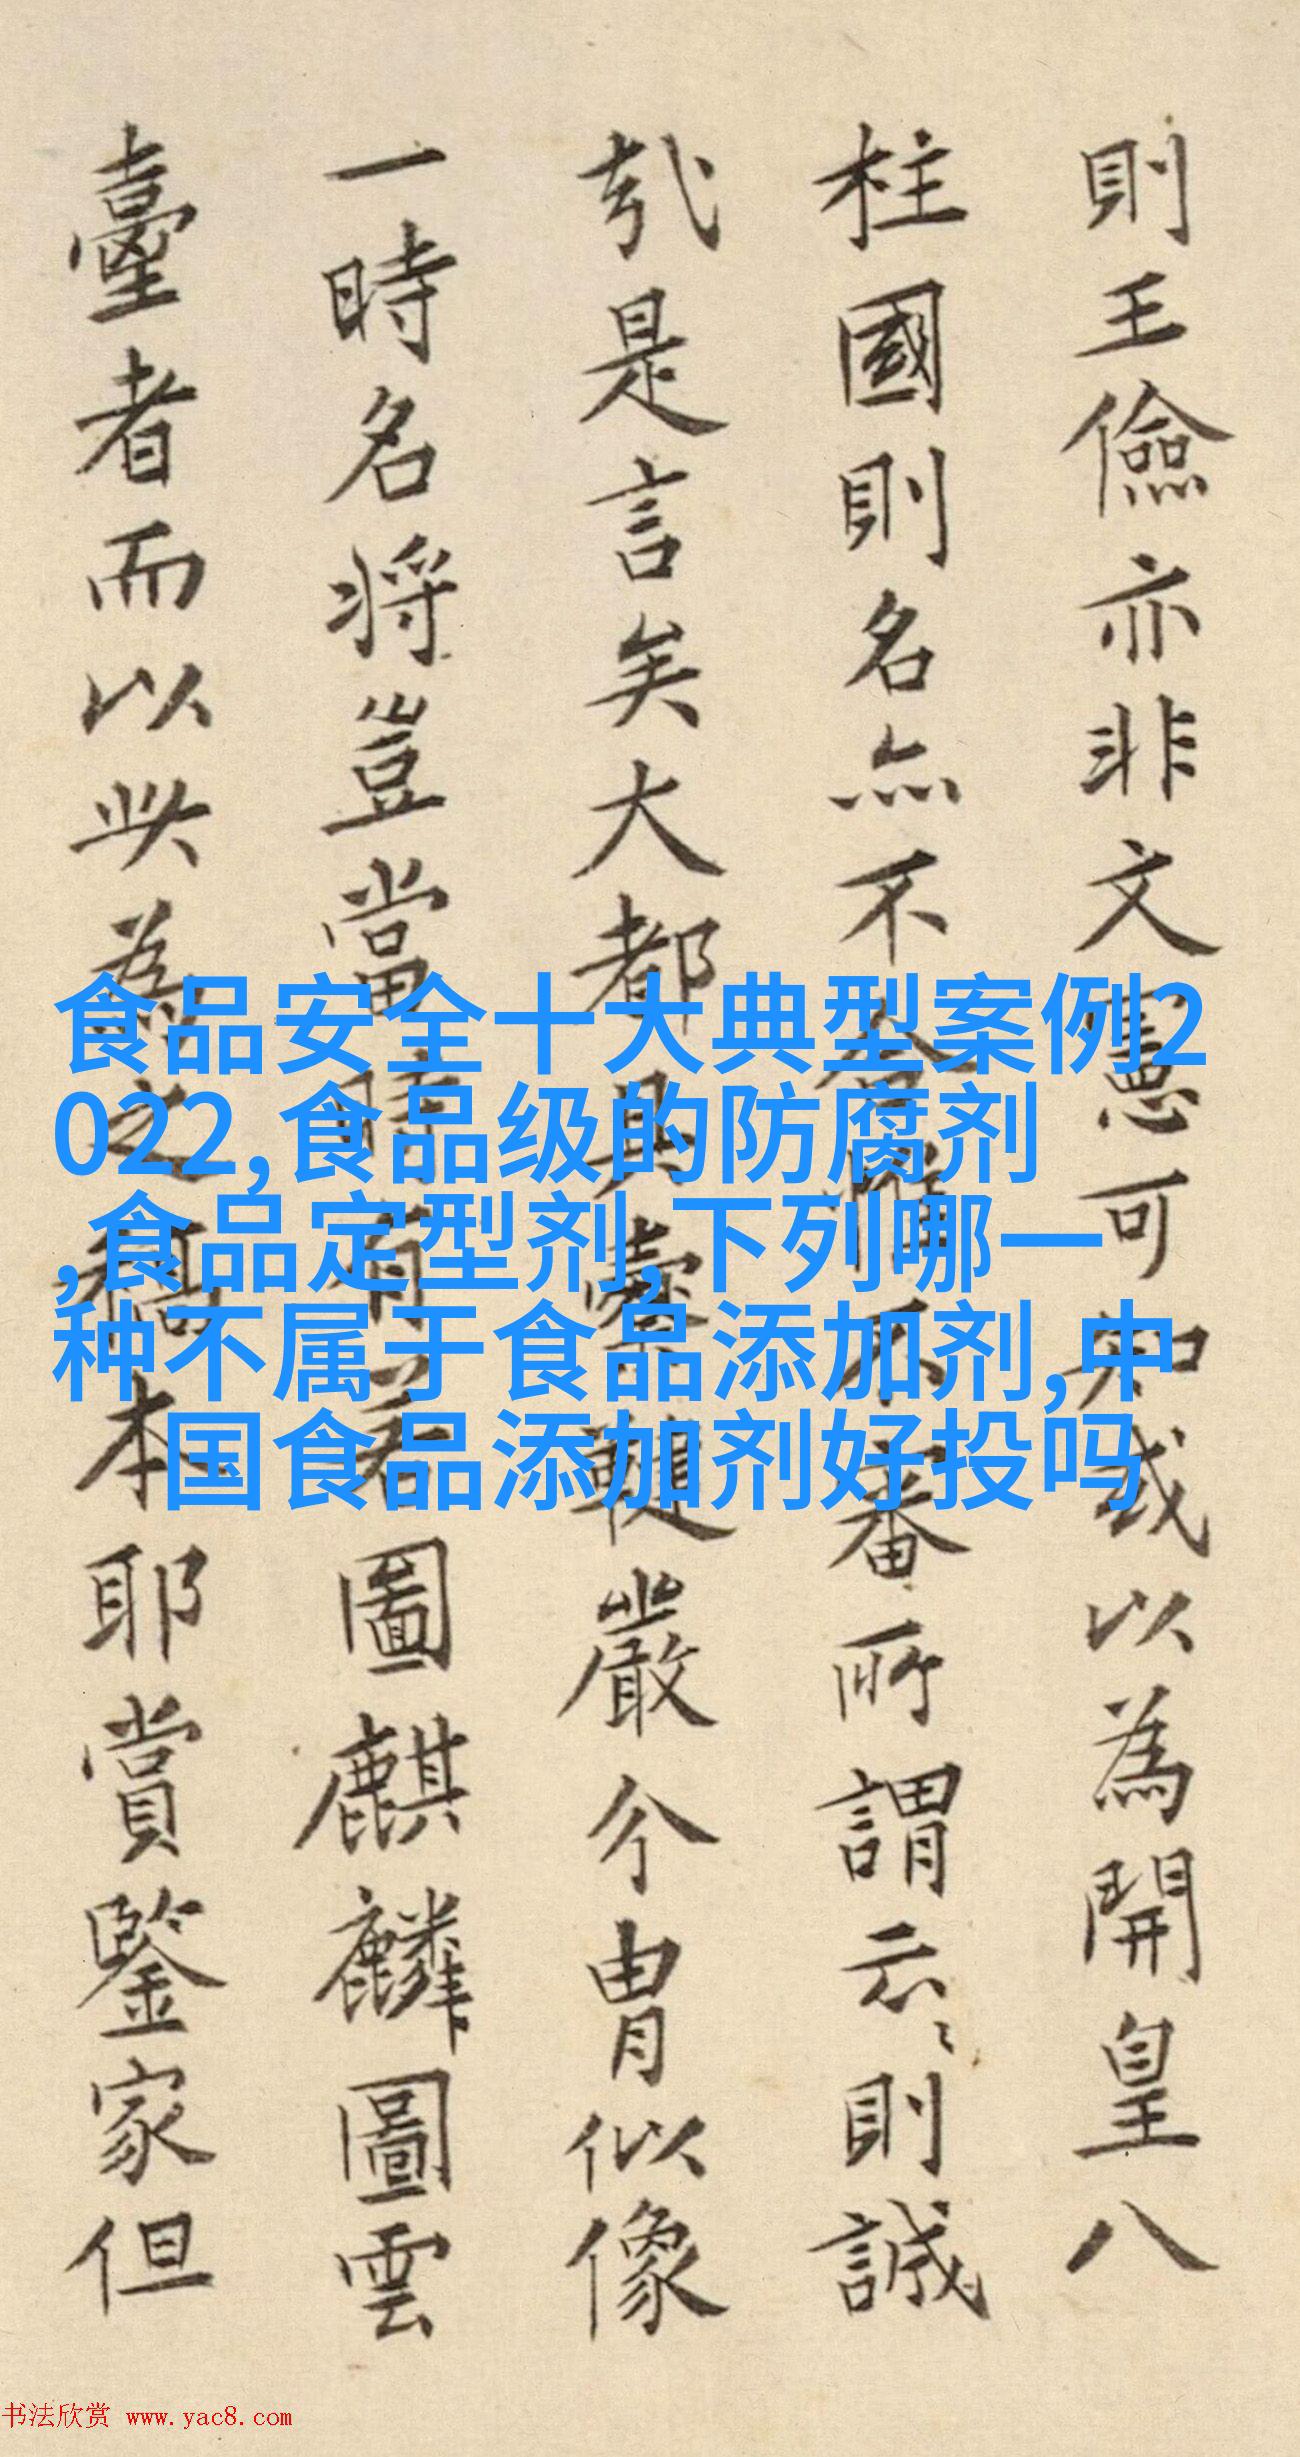 則王儉亦非文憲可知或以為開皇八
柱國則名無不審所謂云云則誠
哉是言矣大都具嚴今胄似像
一時名将豈當時有若圖麒麟圖雲
臺者而以此為之稿本耶賞鑒家但
食品安全十大典型案例2
022,食品级的防腐剂
,食品定型剂,下列哪一
种不属于食品添加剂,中
国食品添加剂好投吗
书法欣赏 www.yac8.com